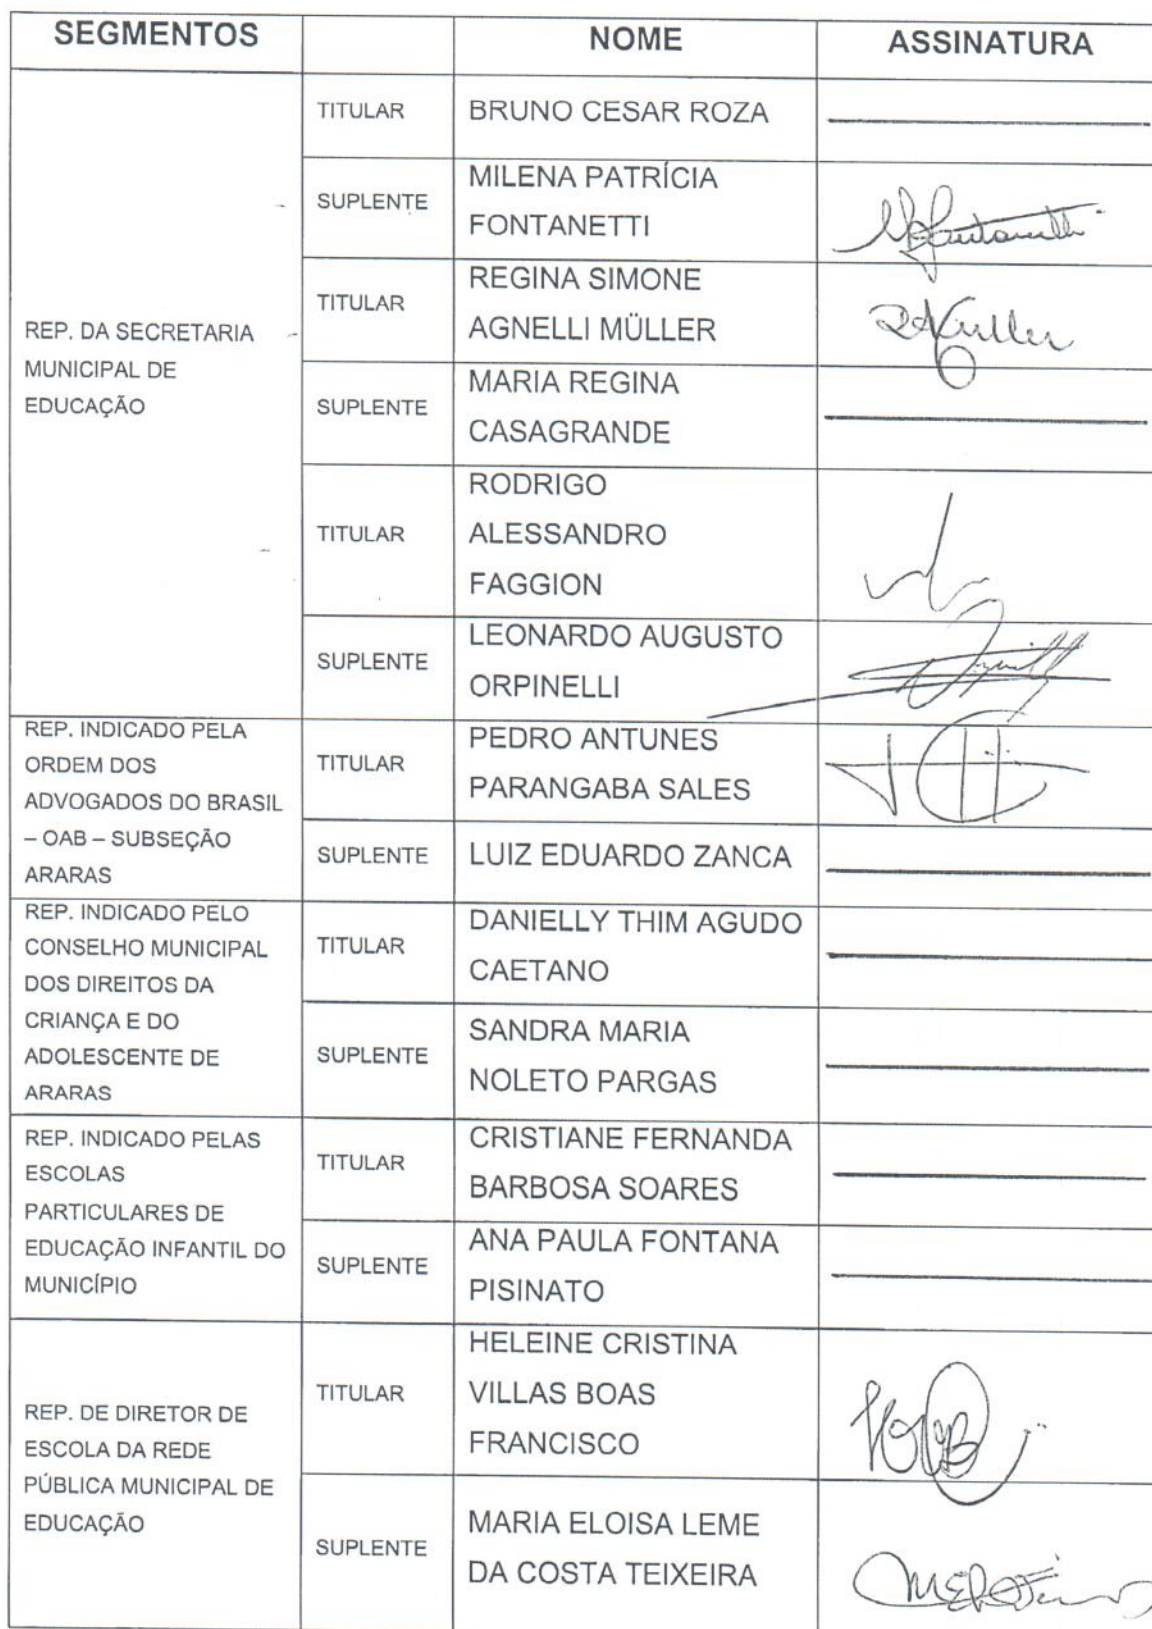 SEGMENTOS
NOME
ASSINATURA
REP. DA SECRETARIA
MUNICIPAL DE
EDUCAÇÃO
TITULAR
BRUNO CESAR ROZA
SUPLENTE
MILENA PATRÍCIA
FONTANETTI
TITULAR
REGINA SIMONE
AGNELLI MÜLLER
SUPLENTE
MARIA REGINA
CASAGRANDE
TITULAR
RODRIGO
ALESSANDRO
FAGGION
SUPLENTE
LEONARDO AUGUSTO
ORPINELLI
REP. INDICADO PELA
ORDEM DOS
ADVOGADOS DO BRASIL
– OAB – SUBSEÇÃO
ARARAS
TITULAR
PEDRO ANTUNES
PARANGABA SALES
SUPLENTE
LUIZ EDUARDO ZANCA
REP. INDICADO PELO
CONSELHO MUNICIPAL
DOS DIREITOS DA
CRIANÇA E DO
ADOLESCENTE DE
ARARAS
TITULAR
DANIELLY THIM AGUDO
CAETANO
SUPLENTE
SANDRA MARIA
NOLETO PARGAS
REP. INDICADO PELAS
ESCOLAS
PARTICULARES DE
EDUCAÇÃO INFANTIL DO
MUNICÍPIO
TITULAR
CRISTIANE FERNANDA
BARBOSA SOARES
SUPLENTE
ANA PAULA FONTANA
PISINATO
REP. DE DIRETOR DE
ESCOLA DA REDE
PÚBLICA MUNICIPAL DE
EDUCAÇÃO
TITULAR
HELEINE CRISTINA
VILLAS BOAS
FRANCISCO
SUPLENTE
MARIA ELOISA LEME
DA COSTA TEIXEIRA